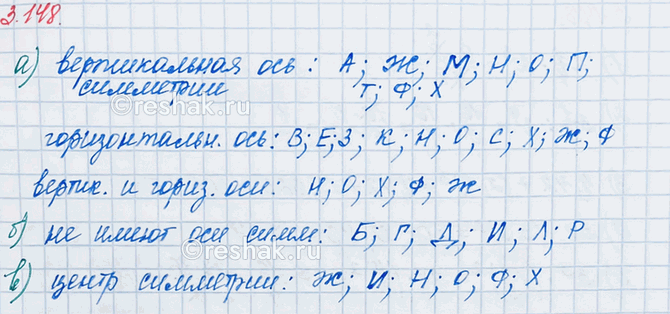 3.148.
а) вертикальная ось: А; Ж; М; Н; О; П;
симметрии Т; Ф; Х
©reshak.ru
горизонтальн. ось: В; Е; З; К; Н; О; С; Х; Ж; Ф
вертик. и гориз. оси: Н; О; Х; Ф; Ж
б) не имеют оси симм: Б; Г; Д; И; Л; Р
в) центр симметрии: Ж; И; Н; О; Ф; Х